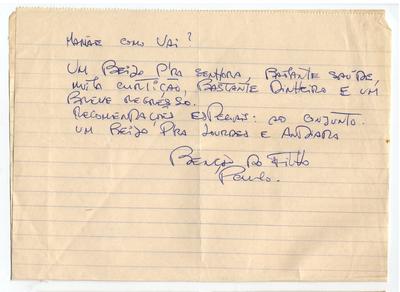 MAMÃE COMO VAI?
UM BEIJO P'RA SENHORA, BASTANTE SAÚDE,
MUITA CURTIÇÃO, BASTANTE DINHEIRO E UM
BREVE REGRESSO.
RECOMENDAÇÕES ESPECIAIS: AO CONJUNTO.
UM BEIJO PRA LOURDES E
BENÇÃO DO FILHO
Paulo.